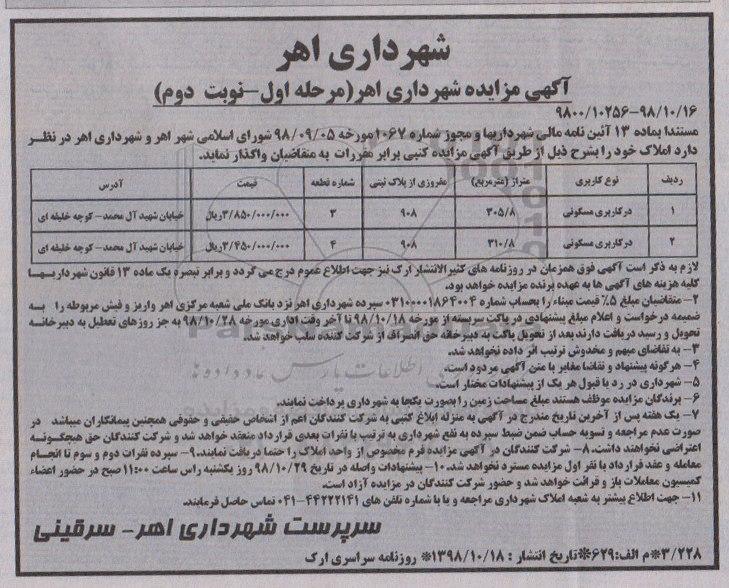 شهرداری اهر
آگهی مزایده شهرداری اهر(مرحله اول-نوبت دوم)
۹۸/۱۰/۱۶-۹۸۰۰/۱۰۲۵۶
مستندا بماده ۱۳ آئین نامه مالی شهرداریها و مجوز شماره ۱۰۶۷ مورخه ۹۸/۰۹/۰۵ شورای اسلامی شهر اهر و شهرداری اهر در نظر
دارد املاک خود را بشرح ذیل از طریق آگهی مزایده کتبی برابر مقررات به متقاضیان واگذار نماید.
ردیف نوع کاربری متراژ (مترمربع) مفروزی از پلاک ثبتی شماره قطعه قیمت آدرس
۱ درکاربری مسکونی ۳۰۵/۸ ۹۰۸ ۳ ۳/۸۵۰/۰۰۰/۰۰۰ریال خیابان شهید آل محمد- کوچه خلیفه ای
۲ درکاربری مسکونی ۳۱۰/۸ ۹۰۸ ۴ ۳/۴۵۰/۰۰۰/۰۰۰ریال خیابان شهید آل محمد- کوچه خلیفه ای
لازم به ذکر است آگهی فوق همزمان در روزنامه های کثیرالانتشار ارک نیز جهت اطلاع عموم درج می گردد و برابر تبصره یک ماده ۱۳ قانون شهرداریها
کلیه هزینه های آگهی ها به عهده برنده مزایده خواهد بود.
۲- متقاضیان مبلغ ۵٪ قیمت مبناء را بحساب شماره ۰۳۱۰۰۰۰۱۸۶۴۰۰۴ سپرده شهرداری اهر نزد بانک ملی شعبه مرکزی اهر واریز و فیش مربوطه را به
ضمیمه درخواست و اعلام مبلغ پیشنهادی در پاکت سربسته از مورخه ۹۸/۱۰/۱۸ تا آخر وقت اداری مورخه ۹۸/۱۰/۲۸ به جز روزهای تعطیل به دبیرخانه
تحویل و رسید دریافت دارند بعد از تحویل پاکت به دبیرخانه حق انصراف از شرکت کننده سلب خواهد شد.
۳- به تقاضای مبهم و مخدوش ترتیب اثر داده نخواهد شد.
۴- هرگونه پیشنهاد و تقاضا مغایر با متن آگهی مردود است.
۵- شهرداری در رد یا قبول هر یک از پیشنهادات مختار است.
۶- برندگان مزایده موظف هستند مبلغ مساحت زمین را بصورت یکجا به شهرداری پرداخت نمایند.
۷- یک هفته پس از آخرین تاریخ مندرج در آگهی به منزله ابلاغ کتبی به شرکت کنندگان اعم از اشخاص حقیقی و حقوقی همچنین پیمانکاران میباشد در
صورت عدم مراجعه و تسویه حساب ضمن ضبط سپرده به نفع شهرداری به ترتیب با نفرات بعدی قرارداد منعقد خواهد شد و شرکت کنندگان حق هیچگونه
اعتراضی نخواهند داشت. ۸- شرکت کنندگان در آگهی مزایده فرم مخصوص از واحد املاک را حتما دریافت نمایند. ۹- سپرده نفرات دوم و سوم تا انجام
معامله و عقد قرارداد با نفر اول مزایده مسترد نخواهد شد. ۱۰- پیشنهادات واصله در تاریخ ۹۸/۱۰/۲۹ روز یکشنبه راس ساعت ۱۱:۰۰ صبح در حضور اعضاء
کمیسیون معاملات باز و قرائت خواهد شد و حضور شرکت کنندگان در کمیسیون مزایده آزاد است.
۱۱- جهت اطلاع بیشتر به شعبه املاک شهرداری مراجعه و یا با شماره تلفن های ۴۴۲۲۲۱۴۱-۰۴۱ تماس حاصل فرمایند.
سرپرست شهرداری اهر- سرقینی
۳/۲۲۸*م الف:۶۲۹*تاریخ انتشار : ۱۳۹۸/۱۰/۱۸* روزنامه سراسری ارک